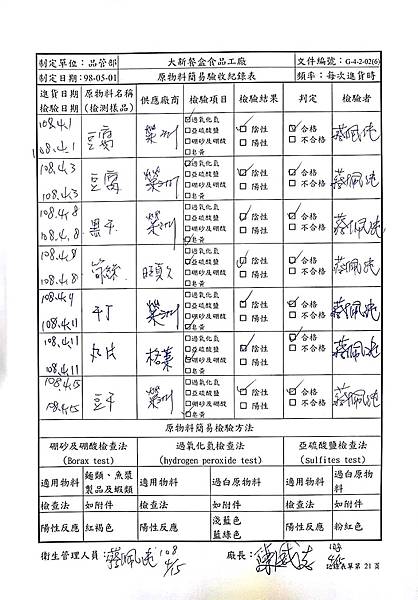 制定單位：品管部 大新餐盒食品工廠 文件編號：G-4-2-02(6)
制定日期：98-05-01 原物料簡易驗收紀錄表 頻率：每次進貨時
進貨日期 檢驗日期 原物料名稱 (檢測樣品) 供應廠商 檢驗項目 檢驗結果 判定 檢驗者
108.4.1 108.4.1 豆腐 ☑過氧化氫 □亞硫酸鹽 □硼砂及硼酸 □皂黃 ☑陰性 □陽性 ☑合格 □不合格 蔡佩純
108.4.3 108.4.3 豆腐 □過氧化氫 □亞硫酸鹽 □硼砂及硼酸 □皂黃 ☑陰性 □陽性 ☑合格 □不合格 蔡佩純
108.4.8 108.4.8 黑干 □過氧化氫 □亞硫酸鹽 □硼砂及硼酸 □皂黃 ☑陰性 □陽性 ☑合格 □不合格 蔡佩純
108.4.8 □過氧化氫 □亞硫酸鹽 □硼砂及硼酸 □皂黃 ☑陰性 □陽性 ☑合格 □不合格 蔡佩純
108.4.11 □過氧化氫 □亞硫酸鹽 □硼砂及硼酸 □皂黃 ☑陰性 □陽性 ☑合格 □不合格 蔡佩純
108.4.11 108.4.11 □過氧化氫 □亞硫酸鹽 □硼砂及硼酸 □皂黃 ☑陰性 □陽性 ☑合格 □不合格 蔡佩純
108.4.15 108.4.15 豆干 □過氧化氫 □亞硫酸鹽 □硼砂及硼酸 □皂黃 ☑陰性 □陽性 ☑合格 □不合格 蔡佩純
原物料簡易檢驗方法
硼砂及硼酸檢查法 (Borax test) 過氧化氫檢查法 (hydrogen peroxide test) 亞硫酸鹽檢查法 (Sulfites test)
適用物料 麵類、魚漿製品及蝦類 適用物料 過白原物料 適用物料 過白原物料
檢查法 如附件 檢查法 如附件 檢查法 如附件
陽性反應 紅褐色 陽性反應 淺藍色 藍綠色 陽性反應 粉紅色
衛生管理人員：蔡佩純 108 4/15 廠長： 108
記錄表單第 21 頁